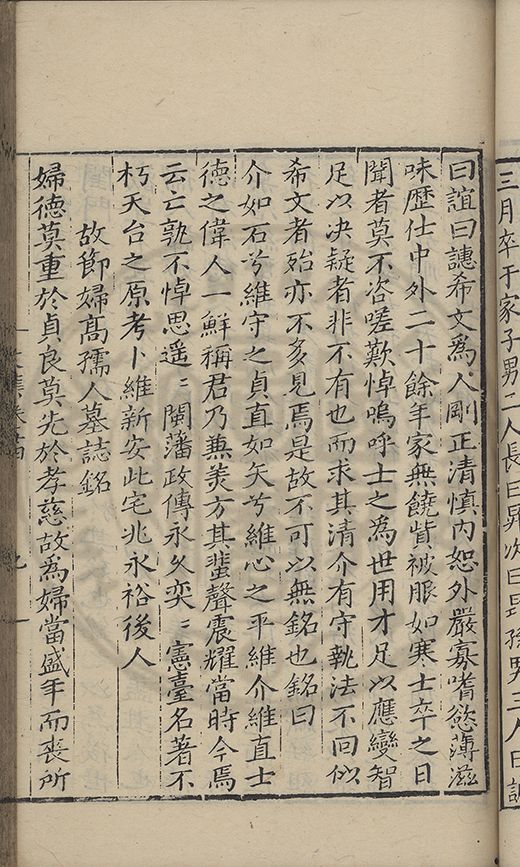 三月卒于家子男二人長曰昇次曰
孫男三人曰
曰誼曰譓希文為人剛正清慎内恕外嚴寡嗜慾薄滋
味歷仕中外二十餘年家無饒貲被服如寒士卒之日
聞者莫不咨嗟歎悼嗚呼士之為世用才足以應變智
足以决疑者非不有也而求其清介有守執法不回似
希文者殆亦不多見焉是故不可以無銘也銘曰
介如石兮維守之貞直如矢兮維心之平維介維直士
德之偉人一鮮稱君乃兼美方其蜚聲震耀當時今焉
云亡孰不悼思遥〻閩藩政傳永久奕〻憲臺名著不
朽天台之原考卜維新安此宅兆永裕後人
故節婦髙孺人墓誌銘
婦德莫重於貞良莫先於孝慈故為婦當盛年而喪所